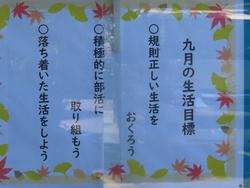 九月の生活目標
〇規則正しい生活を
おくろう
〇積極的に部活に
取り組もう
〇落ち着いた生活をしよう